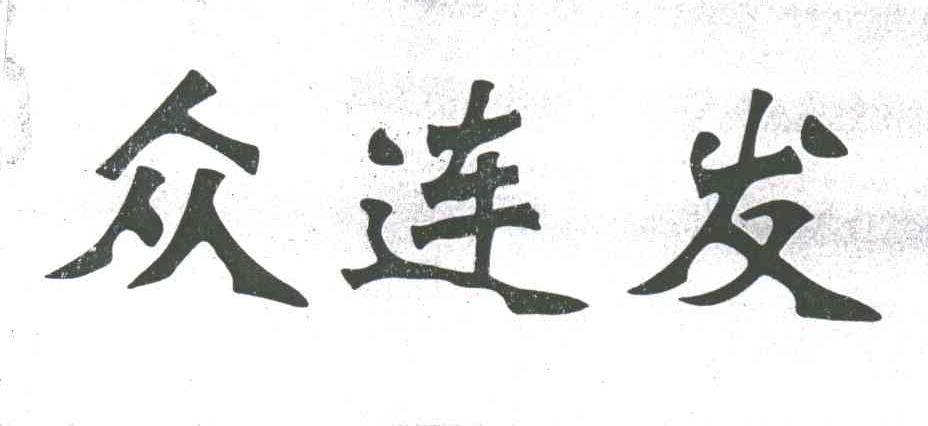 众连发